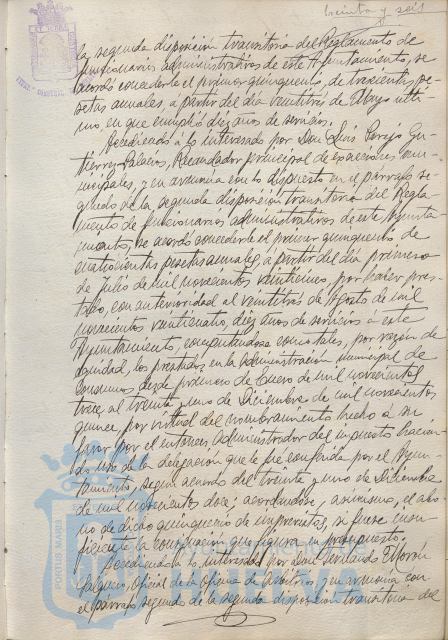 treinta y seis
la segunda disposición transitoria del Reglamento de
funcionarios administrativos de este Ayuntamiento, se
acordó concederle el primer quinquenio, de trescientas pe-
setas anuales, a partir del día veintitres de Mayo ulti-
mo, en que cumplió diez años de servicio.
Accediendo a lo interesado por Don Luis Parejo Gu-
tierrez-Palacios, Recaudador principal de exacciones mu-
nicipales, y en armonia con lo dispuesto en el párrafo se-
gundo de la segunda disposición transitoria del Regla-
mento de funcionarios administrativos de este Ayunta-
miento, se acordó concederle el primer quinquenio de
cuatrocientas pesetas anuales, a partir del día primero
de Julio de mil novecientos veintinueve, por haber pres-
tado, con anterioridad al veintitrés de Agosto de mil
novecientos veinticuatro, diez años de servicios a este
Ayuntamiento, computandose como tales, por razón de
equidad, los prestados en la Administración municipal de
Consumos desde primero de Enero de mil novecientos
trece, al treinta y uno de Diciembre de mil novecientos
quince, por virtud del nombramiento hecho a su
favor por el entonces Administrador del impuesto hacien-
do uso de la delegación que le fue conferida por el Ayun-
tamiento, segun acuerdo del treinta y uno de Diciembre
de mil novecientos doce; acordandose, asimismo, el abo-
no de dicho quinquenio de imprevistos, si fuese insu-
ficiente la consignación que figura en presupuesto.
Accediendo a lo interesado por Don Servando
Salguero, Oficial de la Oficina de Arbitrios, y en armonía con
el párrafo segundo de la segunda disposición transitoria del
PORTUS MARIS
Ayuntamiento de